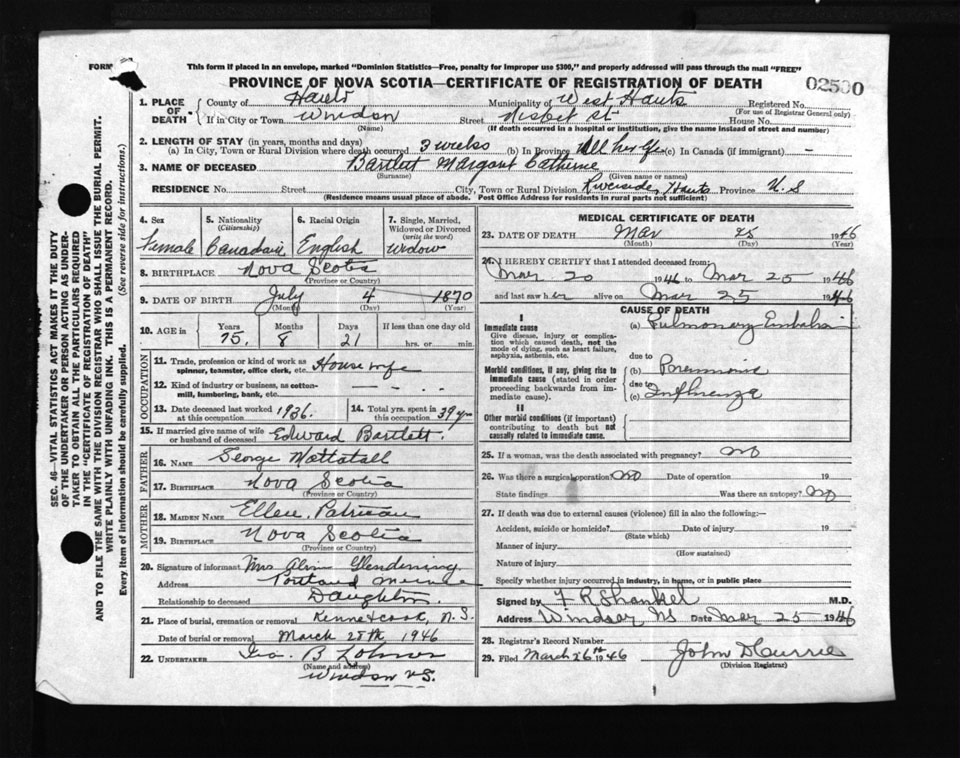 FORM
This form if placed in an envelope, marked "Dominion Statistics—Free, penalty for improper use $300," and properly addressed will pass through the mail "FREE"
PROVINCE OF NOVA SCOTIA—CERTIFICATE OF REGISTRATION OF DEATH
02500
1. PLACE OF DEATH County of Hants Municipality of West Hants Registered No.
(For use of Registrar General only)
If in City or Town Windsor Street Nisbet St House No.
(Name) (If death occurred in a hospital or institution, give the name instead of street and number)
2. LENGTH OF STAY (in years, months and days)
(a) In City, Town or Rural Division where death occurred 3 weeks (b) In Province All her life (c) In Canada (if immigrant) —
3. NAME OF DECEASED Bartlett Margaret Catherine
(Surname) (Given name or names)
RESIDENCE No. Street City, Town or Rural Division Riverside, Hants Province N.S
(Residence means usual place of abode. Post Office Address for residents in rural parts not sufficient)
4. Sex
Female
5. Nationality
(Citizenship)
Canadian
6. Racial Origin
English
7. Single, Married, Widowed or Divorced
(write the word)
Widow
8. BIRTHPLACE Nova Scotia
(Province or Country)
9. DATE OF BIRTH July 4 1870
(Month) (Day) (Year)
10. AGE in Years Months Days If less than one day old
75. 8 21 hrs. or min.
OCCUPATION
11. Trade, profession or kind of work as spinner, teamster, office clerk, etc. Housewife
12. Kind of industry or business, as cotton-mill, lumbering, bank, etc. — — —
13. Date deceased last worked at this occupation 1936. 14. Total yrs. spent in this occupation 39 yrs
15. If married give name of wife or husband of deceased Edward Bartlett.
FATHER
16. NAME George Mattatall
17. BIRTHPLACE Nova Scotia
(Province or Country)
MOTHER
18. MAIDEN NAME Ellen
19. BIRTHPLACE Nova Scotia
(Province or Country)
20. Signature of informant Mrs Alvin Glendining
Address Portland Meine
Relationship to deceased Daughter.
21. Place of burial, cremation or removal Kennetcook, N.S.
Date of burial or removal March 28th 1946
22. UNDERTAKER Geo. B
(Name and address)
Windsor N.S.
MEDICAL CERTIFICATE OF DEATH
23. DATE OF DEATH Mar 25 1946
(Month) (Day) (Year)
24. I HEREBY CERTIFY that I attended deceased from:
Mar 20 1946 to Mar 25 1946
and last saw her alive on Mar 25 1946
CAUSE OF DEATH
I
Immediate cause
Give disease, injury or complication which caused death, not the mode of dying, such as heart failure, asphyxia, asthenia, etc.
(a) Pulmonary Embolism
due to
Morbid conditions, if any, giving rise to immediate cause (stated in order proceeding backwards from immediate cause).
(b) Pneumonia
due to
(c) Influenza
II
Other morbid conditions (if important) contributing to death but not causally related to immediate cause.
25. If a woman, was the death associated with pregnancy? No
26. Was there a surgical operation No Date of operation 19
State findings Was there an autopsy? No
27. If death was due to external causes (violence) fill in also the following:—
Accident, suicide or homicide? Date of injury 19
(State which)
Manner of injury
(How sustained)
Nature of injury
Specify whether injury occurred in industry, in home, or in public place
Signed by F R Shankel M.D.
Address Windsor NS Date Mar 25 1946
28. Registrar's Record Number
29. Filed March 26th 1946 John D Currie
(Division Registrar)
SEC. 46—VITAL STATISTICS ACT MAKES IT THE DUTY
OF THE UNDERTAKER OR PERSON ACTING AS UNDER-
TAKER TO OBTAIN ALL THE PARTICULARS REQUIRED
IN THE "CERTIFICATE OF REGISTRATION OF DEATH"
AND TO FILE THE SAME WITH THE DIVISION REGISTRAR WHO SHALL ISSUE THE BURIAL PERMIT.
WRITE PLAINLY WITH UNFADING INK. THIS IS A PERMANENT RECORD.
Every item of information should be carefully supplied. (See reverse side for instructions.)